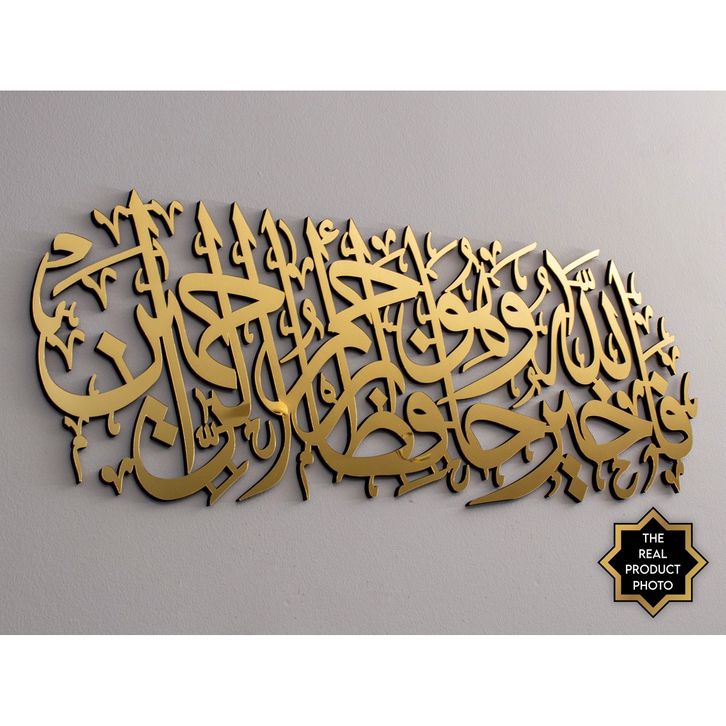 فالله خير حافظا وهو أرحم الراحمين
THE
REAL
PRODUCT
PHOTO